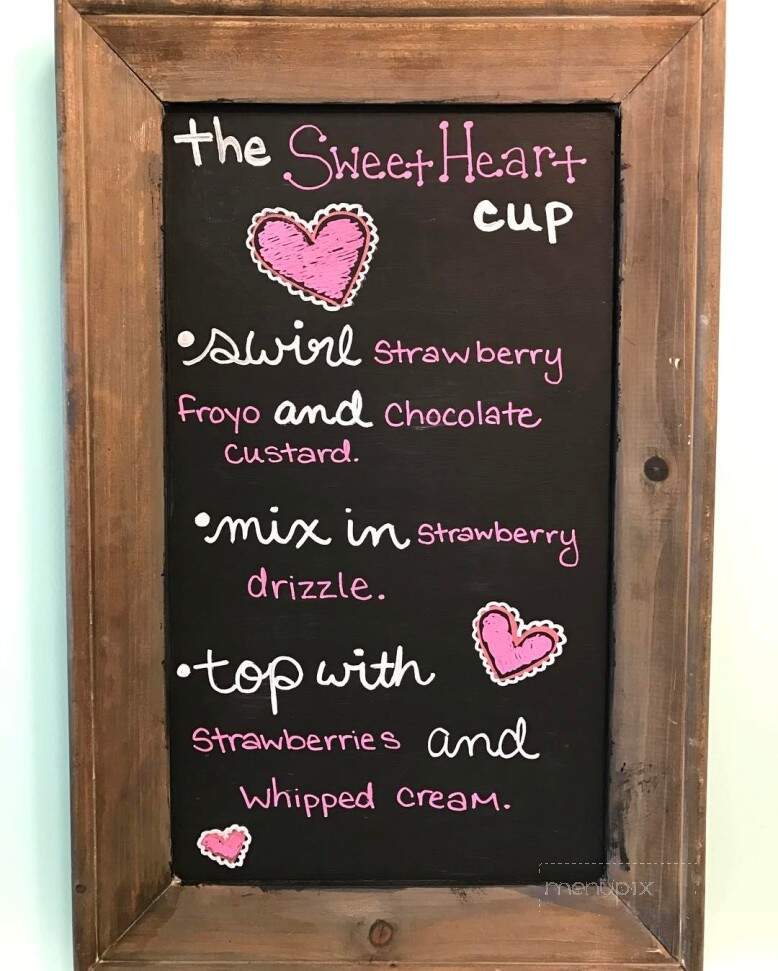 the SweetHeart
cup
•swirl strawberry
Froyo and Chocolate
custard.
•mix in strawberry
drizzle.
•top with
strawberries and
whipped cream.
menupix